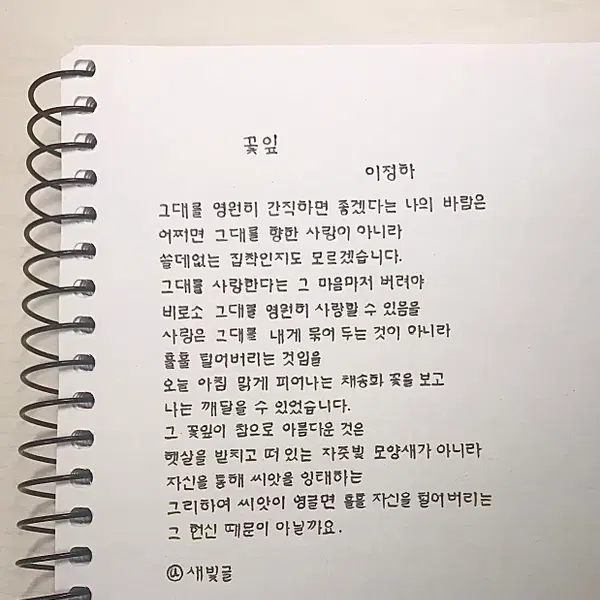 꽃잎
이정하
그대를 영원히 간직하면 좋겠다는 나의 바람은
어쩌면 그대를 향한 사랑이 아니라
쓸데없는 집착인지도 모르겠습니다.
그대를 사랑한다는 그 마음마저 버려야
비로소 그대를 영원히 사랑할 수 있음을
사랑은 그대를 내게 묶어 두는 것이 아니라
훌훌 털어버리는 것임을
오늘 아침 맑게 피어나는 채송화 꽃을 보고
나는 깨달을 수 있었습니다.
그 꽃잎이 참으로 아름다운 것은
햇살을 받치고 떠 있는 자줏빛 모양새가 아니라
자신을 통해 씨앗을 잉태하는
그리하여 씨앗이 영글면 훌훌 자신을 털어버리는
그 헌신 때문이 아닐까요.
ⓤ 새빛글